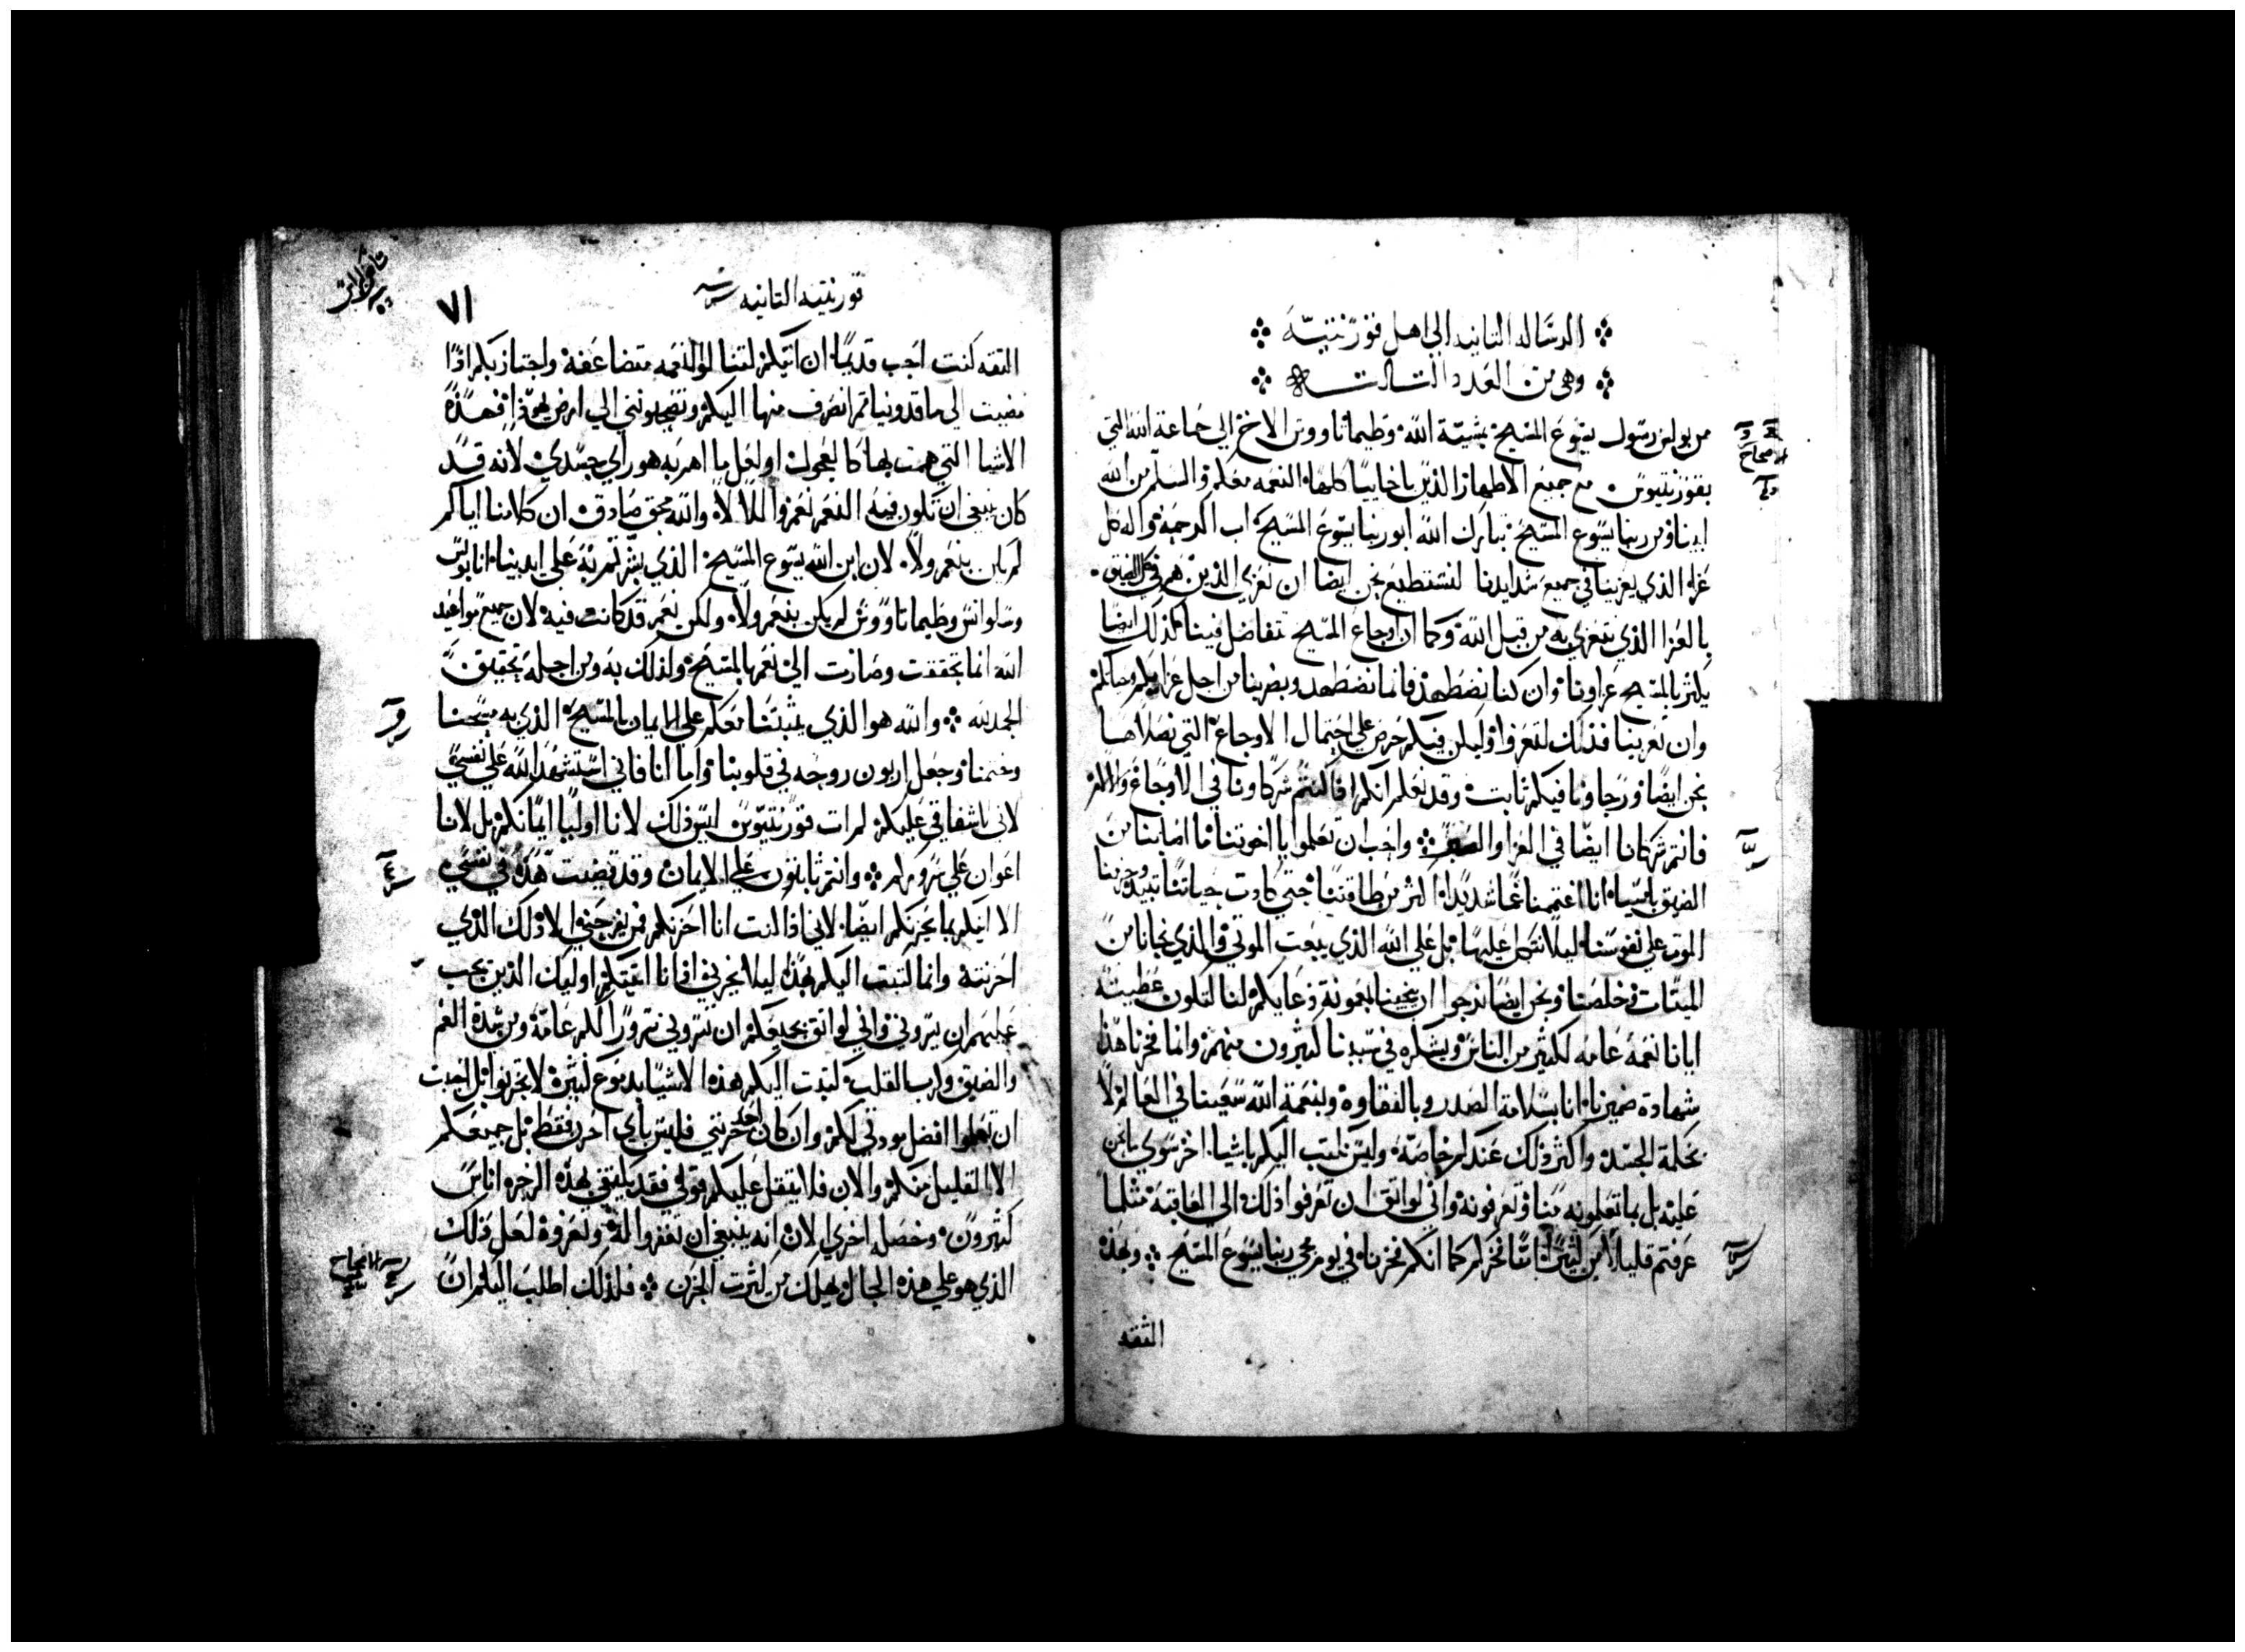 الرساله التانيه الي اهل قورنتيه
وهي من العدد التالت
من بولس رسول يسوع المسيح بمشية الله وطيماتاووس الاخ الي جماعة الله التي
بقورنتيوس مع جميع الاطهار الذين باخاييا كلها النعمه معكم والسلم من الله
ابينا ومن ربنا يسوع المسيح تبارك الله ابو ربنا يسوع المسيح اب الرحمة واله كل
عزاء الذي يعزينا في جميع شدايدنا لنستطيع نحن ايضا ان نعزي الذين هم في كل الضيق
بالعزا الذي نتعزي به من قبل الله وكما ان اوجاع المسيح تتفاضل فينا كذلك ايضا
يكثر بالمسيح عزاونا وان كنا نضطهد فانما نضطهد من اجل عزايكم
وان تعزينا فذلك لتعزوا وليكن فيكم حرص علي احتمال الاوجاع التي نصلاها
نحن ايضا ورجاونا فيكم تابت وقد نعلم انكم اذا كنتم شركاونا في الاوجاع والالم
فانتم شركانا ايضا في العزا واحب ان تعلموا يا اخوتنا ما اصابنا من
الضيق باسيا انا اغتممنا غما شديدا اكثر من طاقتنا حتي كادت حياتنا تبيد وجزمنا
الموت علي نفوسنا ليلا نتكل عليها بل علي الله الذي يبعت الموتي والذي نجانا من
الميتات وخلصنا ونحن ايضا نرجوا ان ينجينا بمعونة دعايكم لنا لتكون عطيته
ايانا نعمة عامه لكثير من الناس ويشكره في سببنا كثيرون منهم وانما فخرنا هذا
شهادة ضميرنا انا بسلامة الصدر وبالنقاوه وبنعمة الله سعينا في العالم لا
بحكمة الجسد واكثر ذلك عندكم خاصة وليس نكتب اليكم باشيا اخر سوي ما نحن
عليه بل بما تعلمونه منا وتعرفونه واني لواثق ان تعرفوا ذلك الي العاقبة مثلما
عرفتم قليلا من كثير انا فخركم كما انكم فخرنا في يوم مجي ربنا يسوع المسيح وبهذه
الثقه
قورنتيه التانيه
٧١
الثقه كنت احب قديما ان اتيكم لتنالوا النعمه متضاعفة واجتاز بكم اذا
مضيت الي ماقدونيا تم انصرف منها اليكم وتصحبونني الي ارض يهودا فهذه
الاشيا التي هممت بها كالعجول او لعل ما اهم به هو راي جسدي لانه قد
كان ينبغي ان تكون فيه النعم نعم واللا لا والله محق صادق ان كلامنا اياكم
لم يكن بنعم ولا لان ابن الله يسوع المسيح الذي بشرتم به علي ايدينا انا بولس
وسلوانس وطيماتاووس لم يكن بنعم ولا ولكن نعم قد كانت فيه لان جميع مواعيد
الله انما تحققت وصارت الي نعم بالمسيح ولذلك به ومن اجله تحقيق
الحمد لله والله هو الذي يثبتنا معكم علي الايمان بالمسيح الذي به مسحنا
وختمنا وجعل اربون روحه في قلوبنا واما انا فاني استشهد الله علي نفسي
لاني باشفاقي عليكم لم ات قورنتيوس ليس ذلك لانا اوليا ايمانكم بل لانا
اعوان علي سروركم وانتم ثابتون علي الايمان وقد قضيت هذه في نفسي
الا اتيكم بما يحزنكم ايضا لاني اذا كنت انا احزنكم فمن يفرحني الا ذلك الذي
احزنته وانما كتبت اليكم بهذا ليلا يحزنني اذا انا اتيتكم اوليك الذين يجب
عليهم ان يسروني واني لواثق بجميعكم ان سروري سرورا لكم عامة ومن شدة الغم
والضيق وكرب القلب كتبت اليكم هذه الاشيا بدموع كثيرة لا لتحزنوا بل احببت
ان تعلموا افضل مودتي لكم وان كان احد احزنني فليس اياي احزن فقط بل جميعكم
الا القليل منكم والان فلا يثقل عليكم قولي فقد يكتفي بهذه الزجره اناس
كثيرون وخصله اخري الان انه ينبغي ان تغفروا له وتعزوه لعل ذلك
الذي هو علي هذه الحال يهلك من كثرت الحزن فلذلك اطلب اليكم ان